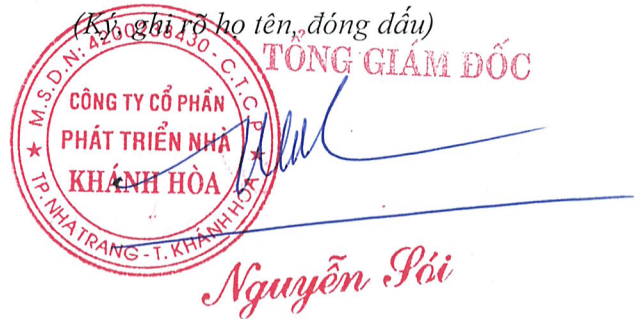 (Ký, ghi rõ họ tên, đóng dấu)
TỔNG GIÁM ĐỐC
- C.T.C.P
CÔNG TY CỔ PHẦN
PHÁT TRIỂN NHÀ
KHÁNH HÒA
TP. NHA TRANG - T. KHÁNH HÒA
M.S.D.N:
Nguyễn Sói